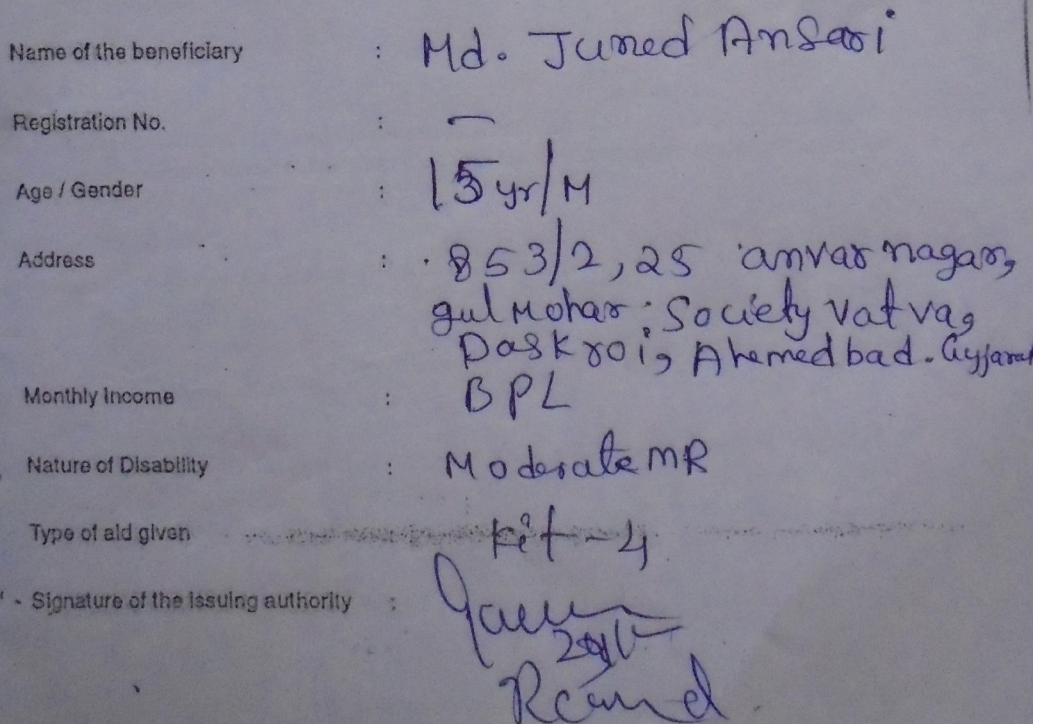 Name of the beneficiary : Md. Juned Ansari
Registration No. : —
Age / Gender : 15 yr/M
Address : 853/2, 25 anvar nagar,
gul Mohar Society Vatva,
Daskroi, Ahemedbad. Gujarat
Monthly Income : BPL
Nature of Disability : Moderate MR
Type of aid given kit-4
Signature of the issuing authority :